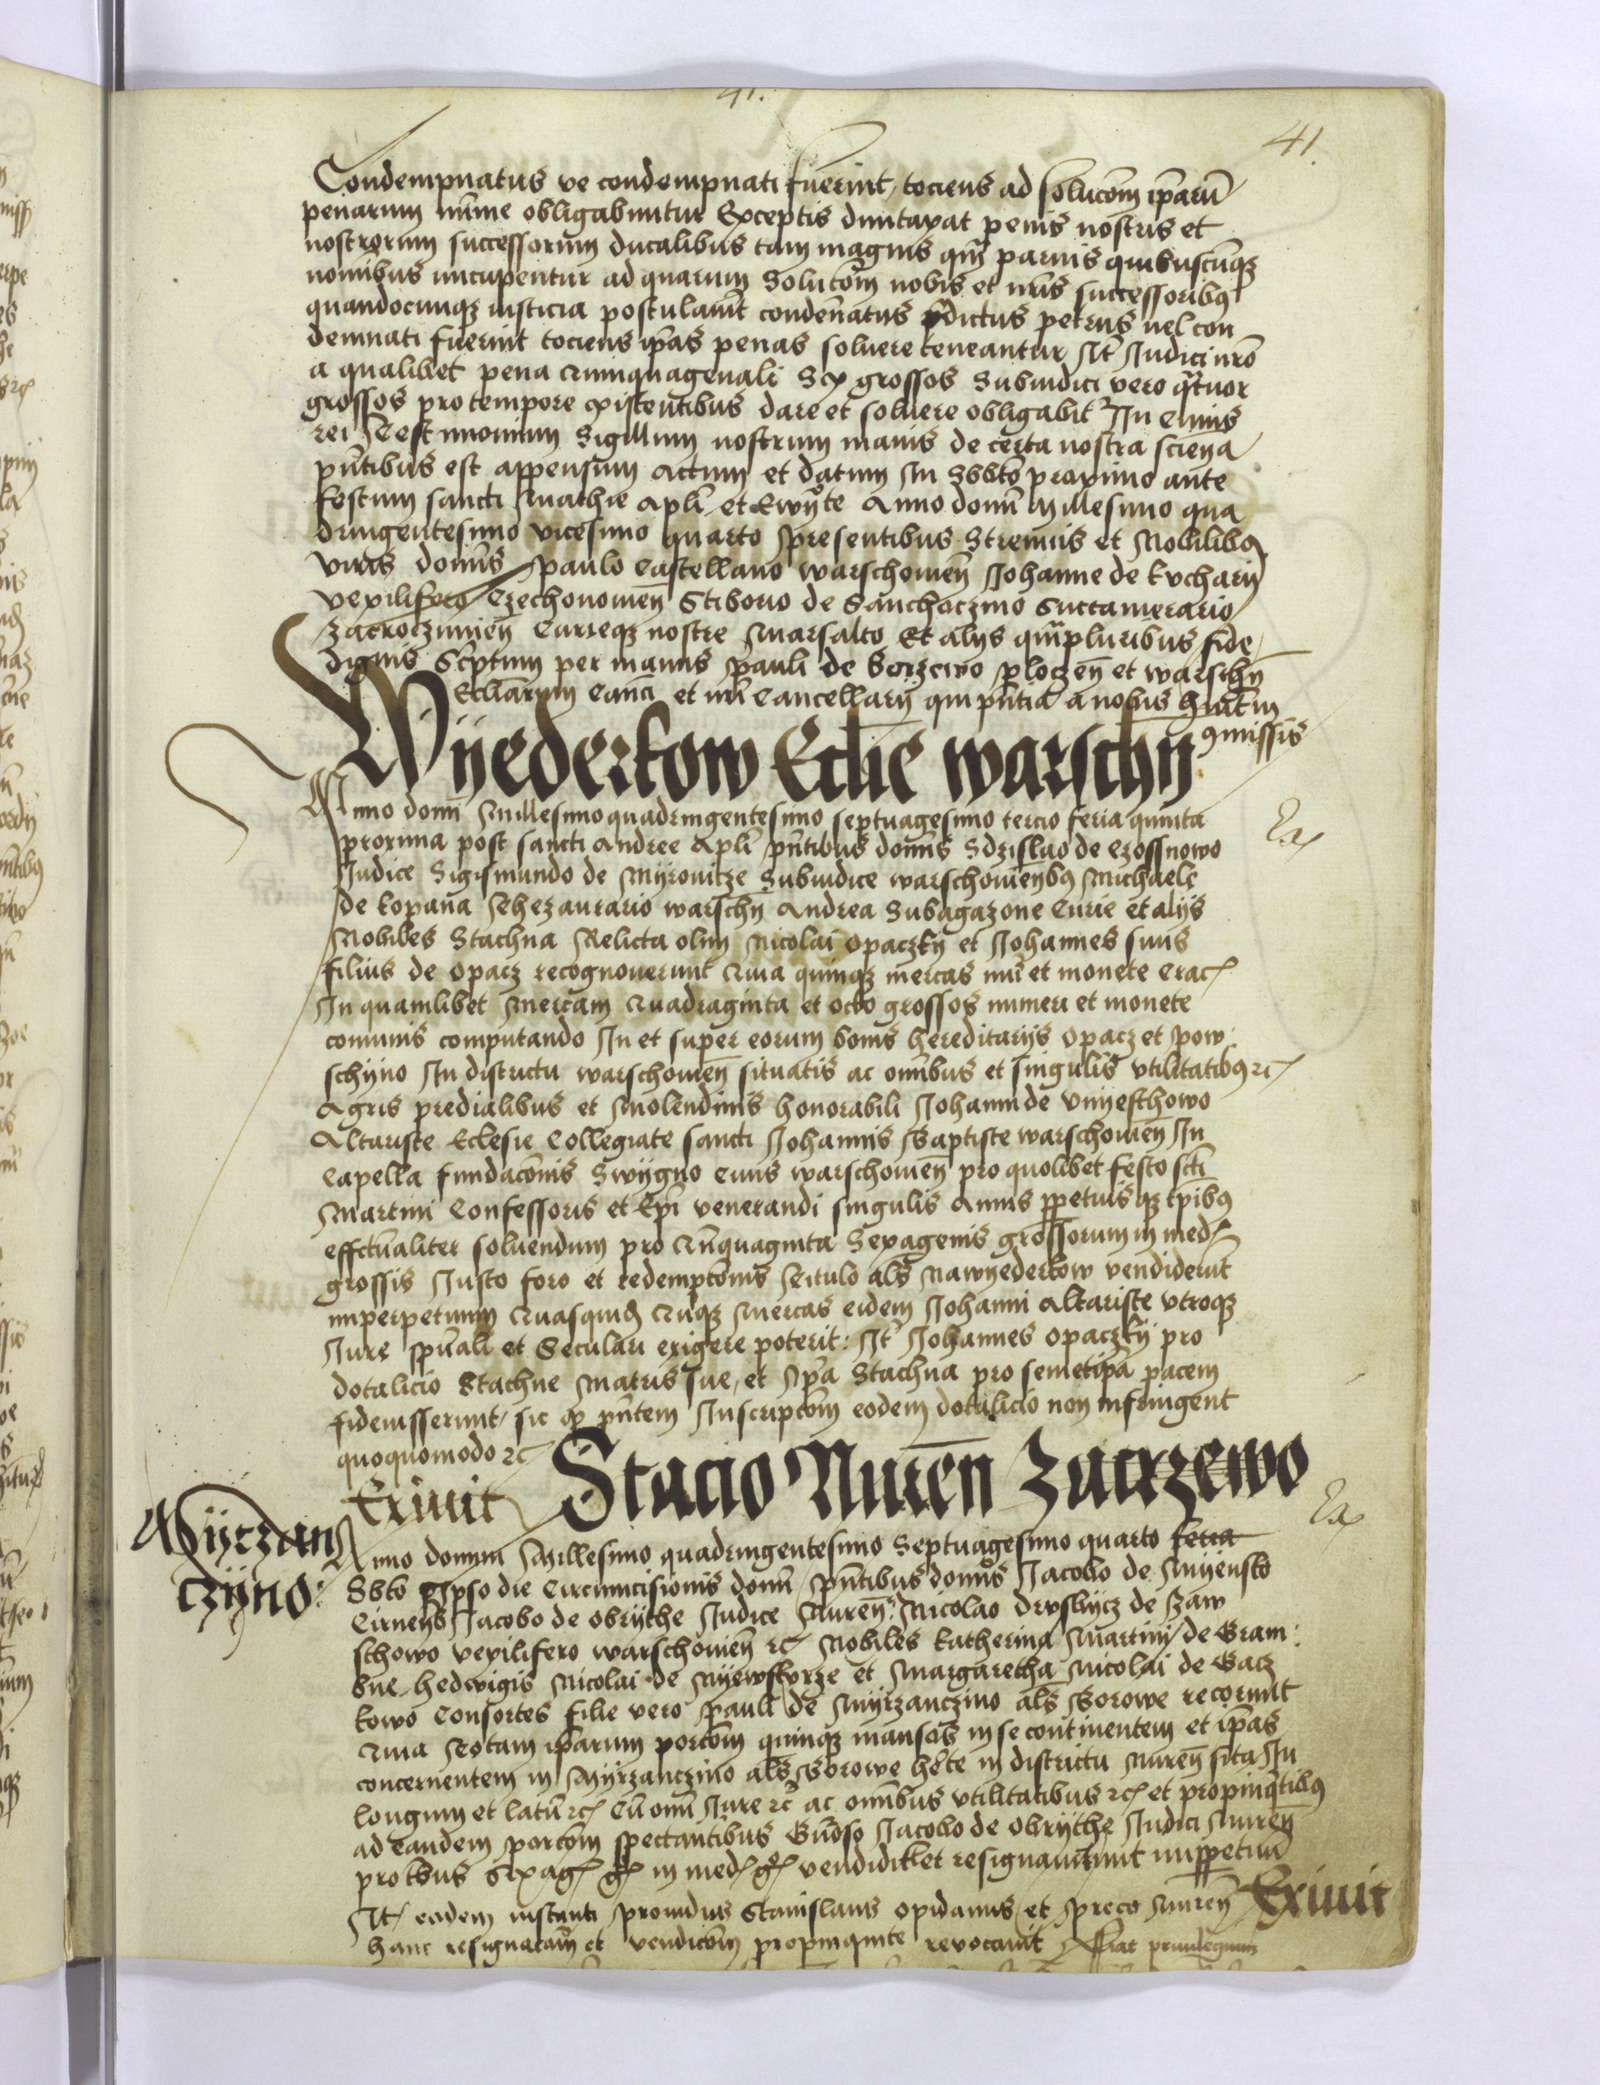 41.
41.
Condempnatus ve condempnati fuerint, tociens ad soluc̄om ip̄aru̅
penarum mīme obligabuntur Exceptis duntaxat penis nostris et
nostrorum successorum ducalibus tam magnis qm̄ paruis quibuscūqz
nomībus nucupentur ad quarum Soluto̅m nobis et nr̄is successoribq
quandocunqz iusticia postulauīt condēnatus p̄dictus petrus uel con
demnati fuerint tociens ip̄as penas soluere teneantur It̄ Judici nr̄o
a qualibet pena quinquagenali Sex grossos Subiudici vero q̄tuor
grossos pro tempore existentibus dare et soluere obligabit᷑ In cuius
rei Testimonium Sigillum nostrum maius de certa nostra sciencia
pn̄tibus est appensum Actum et datum In Sbb̄to proximo ante
festum sancti Mathie apl̄i et Ewn̄gte Anno domī Millesimo qua
dringentesimo vicesimo quarto presentibus Strennuis et Nobilibq
viris domīs Paulo Castellano warschouien̄ Johanne de kucharÿ
vexilifero Czechonouien̄ Stiboro de Sanchoczino Succamerario
Zacroczimien̄ Curieqz nostre Marsalco Et alijs qm̄pluribus fide
dignis Sc̄ptum per manus Pauli de Borzewo plocen̄ et warschn̄
Ecl̄iarum Can̄ci et nr̄i Cancellarÿ qui pn̄tia a nobis huīt in
ꝯmissis
Wÿederkow Ecl̄ie warschn̄
Anno domī Millesimo quadringentesimo septuagesimo tercio feria quinta
proxima post sancti Andree Apl̄i pn̄tibus domīs Sdzislao de Czossnowo
Judice Sigismundo de Mÿrouicze Subiudice warschouien̄bq Michaele
de kopana Thezaurario warschn̄ Andrea Subagazone Curie et alijs
Nobiles Stachna Relicta olim Nicolai Opaczkÿ et Johannes suus
filius de Opacz recognouerunt Quia quinqz mercas nūi et monete
In quamlibet mercam Quadraginta et octo grossos numeri et monete
comunis computando In et super eorum bonis hereditarijs Opacz et Pow
schÿno In districtu warschouien̄ situatis ac omībus et singulis vtilitatibq rc̄
Agris predialibus et Molendinis honorabili Johanni de Vnÿeschowo
Altariste Eclesie Collegiate sancti Johannis Baptiste warschouien̄ In
Capella fundac̄onis Swÿgno Ciuis warschouien̄ pro quolibet festo sc̄ti
Martini Confessoris et Ep̄i venerandi singulis Annis ꝑpetuisqz tp̄ibq
effctualiter soluendum pro Qn̄quaginta Sexagenis grossorum in med
grossis Justo foro et redempc̄onis Titulo als̄ Nawÿederkow vendiderūt
imperpetuum Quasquid̄ Qn̄qz Mercas eidem Johanni Altariste vtroqz
Jure spūali et Seculari exigere poterit: It̄ Johannes Opaczkÿ pro
dotalicio Stachne Matris sue, et Ip̄a Stachna pro semetip̄a pacem
fideiusserunt, sic qz pn̄tem Inscripc̄om eodem dotalicio non infringent
quoquomodo rc̄
Exiuit Stacio Nuren̄ Zacrzewo
Mÿrzan
czÿno:
Anno domini Millesimo quadringentesimo Septuagesimo quarto feria
Sbb̄to Ipso die Circumcisionis domī pn̄tibus domīs Jacobo de Mÿensko
Cirnen̄s Jacobo de Obrÿthe Judice Nuren̄. Nicolao Drsbÿcz de Szaw
schowo vexilifero warschouien̄ rc̄ Nobiles Katherina Martini de Gram
bue, hedwigis Nicolai de Nÿewskorze et Margaretha Nicolai de Gacz
kowo Consortes filie vero Pauli de Mÿrzanczino als̄ Borowe recog̅runt
Quia Totam ip̄arum porc̄om quinqz mansos in se continentem et ip̄as
concernentem in Mÿrzanczino als̄ Borowe hēre in districtu Nuren̄ sita In
longum et latu̅ rc̄ Cu̅ omī Jure rc̄ ac omībus vtilitatibus rc̄ et propinq̄tibq
ad eandem porc̄om spectantibus Gn̄oso Jacobo de Obrÿthe Judici Nuren̄
pro tbus Sexag gr̄ in med gr̄ vendidit et resignauerunt imꝑpetuu̅
Exiuit
It̄ eodem instanti prouidus Stanislaus opidanus et Preco Nuren̄
hanc resignac̄om et vendic̄om propinquite reuocauit Fiat priuilegium